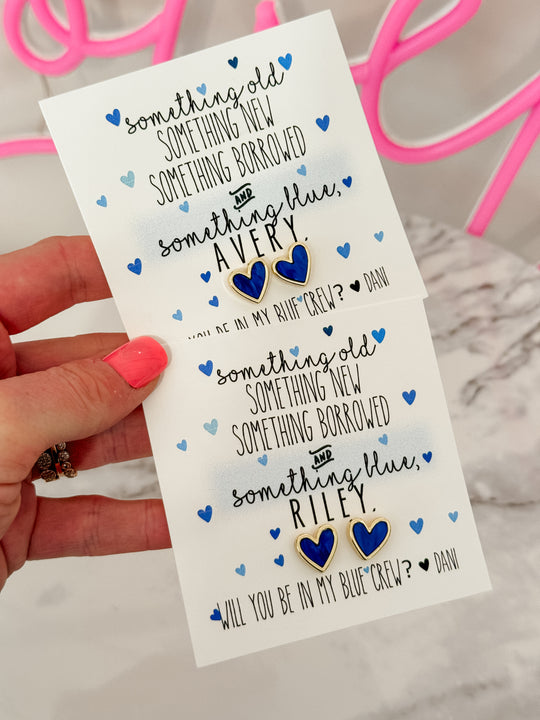 something old
SOMETHING NEW
SOMETHING BORROWED
AND
something blue,
AVERY,
YOU BE IN MY BLUE CREW? ♥ DANI
something old
SOMETHING NEW
SOMETHING BORROWED
AND
something blue,
RILEY,
WILL YOU BE IN MY BLUE CREW? ♥ DANI